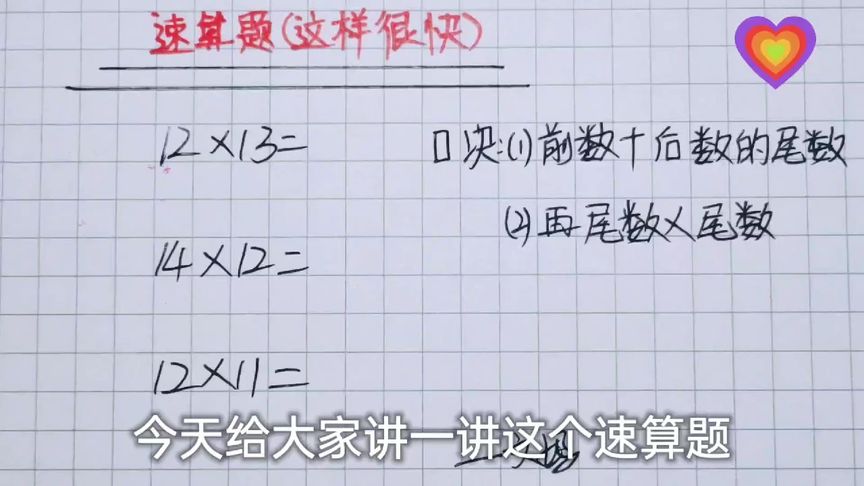 速算题(这样很快)
12×13=
口决:(1)前数+后数的尾数
(2)再尾数×尾数
14×12=
12×11=
今天给大家讲一讲这个速算题